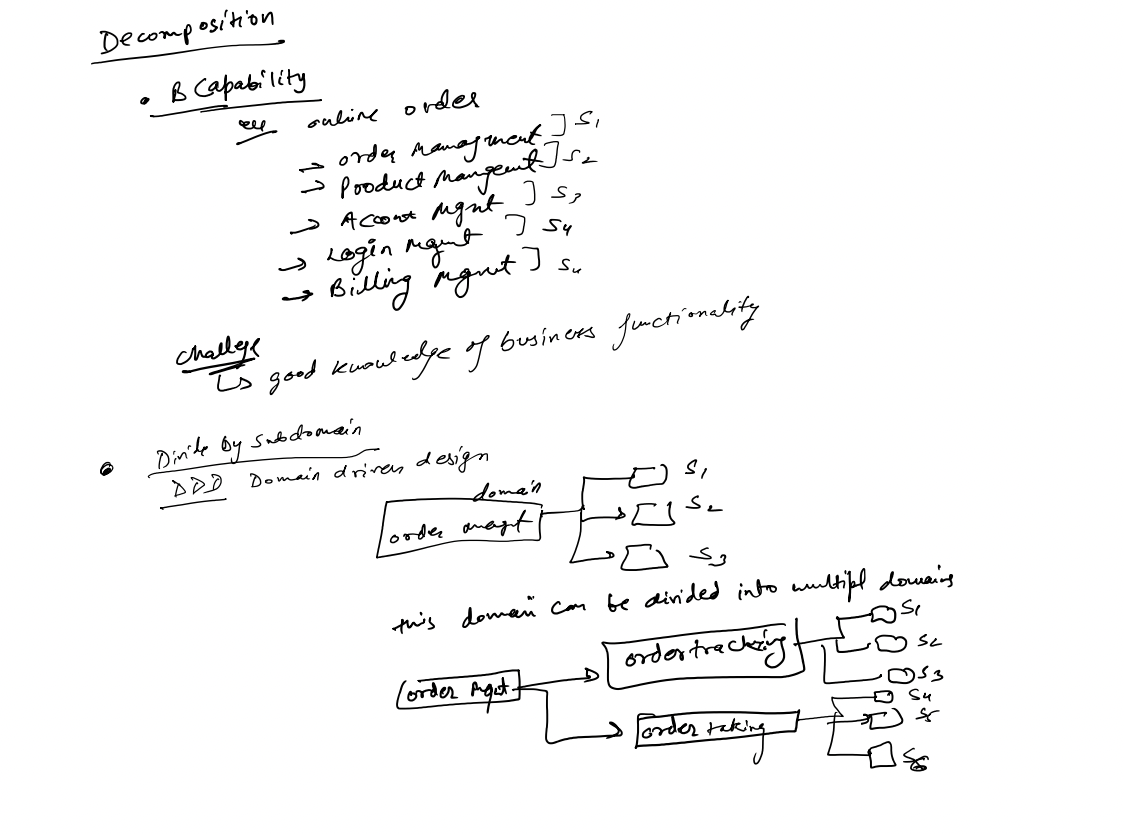 Decomposition
• B Capability
eg online order
→ order managment ] S1
→ Product Mangemt ] S2
→ Account Mgnt ] S3
→ Login Mgmt ] S4
→ Billing Mgmt ] S4
challege
↳ good knowledge of business functionality
• Divide by Subdomain
DDD Domain driven design
domain
order mangt
S1
S2
S3
this domain can be divided into multipl domains
order Mgmt
order tracking
S1
S2
S3
order taking
S4
S5
S6